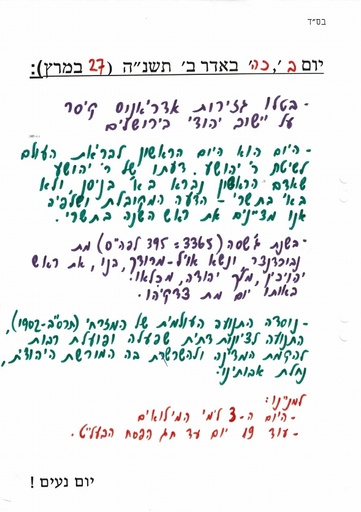 בס״ד
יום ב׳, כה׳ באדר ב׳ תשנ״ה (27 במרץ):
- בטלו גזירות אדריאנוס קיסר
על יישוב יהודי בירושלים
- היום הוא היום הראשון לבריאת העולם
לשיטת ר׳ יהושע. דעתו של ר׳ יהושע
שאדם הראשון נברא בא׳ בניסן, ולא
בא׳ בתשרי - הדעה המקובלת ושלפיה
אנו מציינים את ראש השנה בתשרי.
- בשנת ג׳שסה (3365 = 395 לפה״ס) מת
נבוכדנצר, ונשא אויל-מרודך, בנו, את ראש
יהויכין, מלך יהודה, מכלאו.
באותו יום מת צדקיהו.
- נוסדה התנועה העולמית של המזרחי (תרס״ב-1902),
התנועה לציונות דתית שפעלה ופועלת רבות
להקמת המדינה ולהשרשת בה המורשת היהודית,
נחלת אבותינו.
למנייננו:
- היום ה-3 לימי המילואים
- עוד 19 יום עד חג הפסח הבעל״ט.
יום נעים !